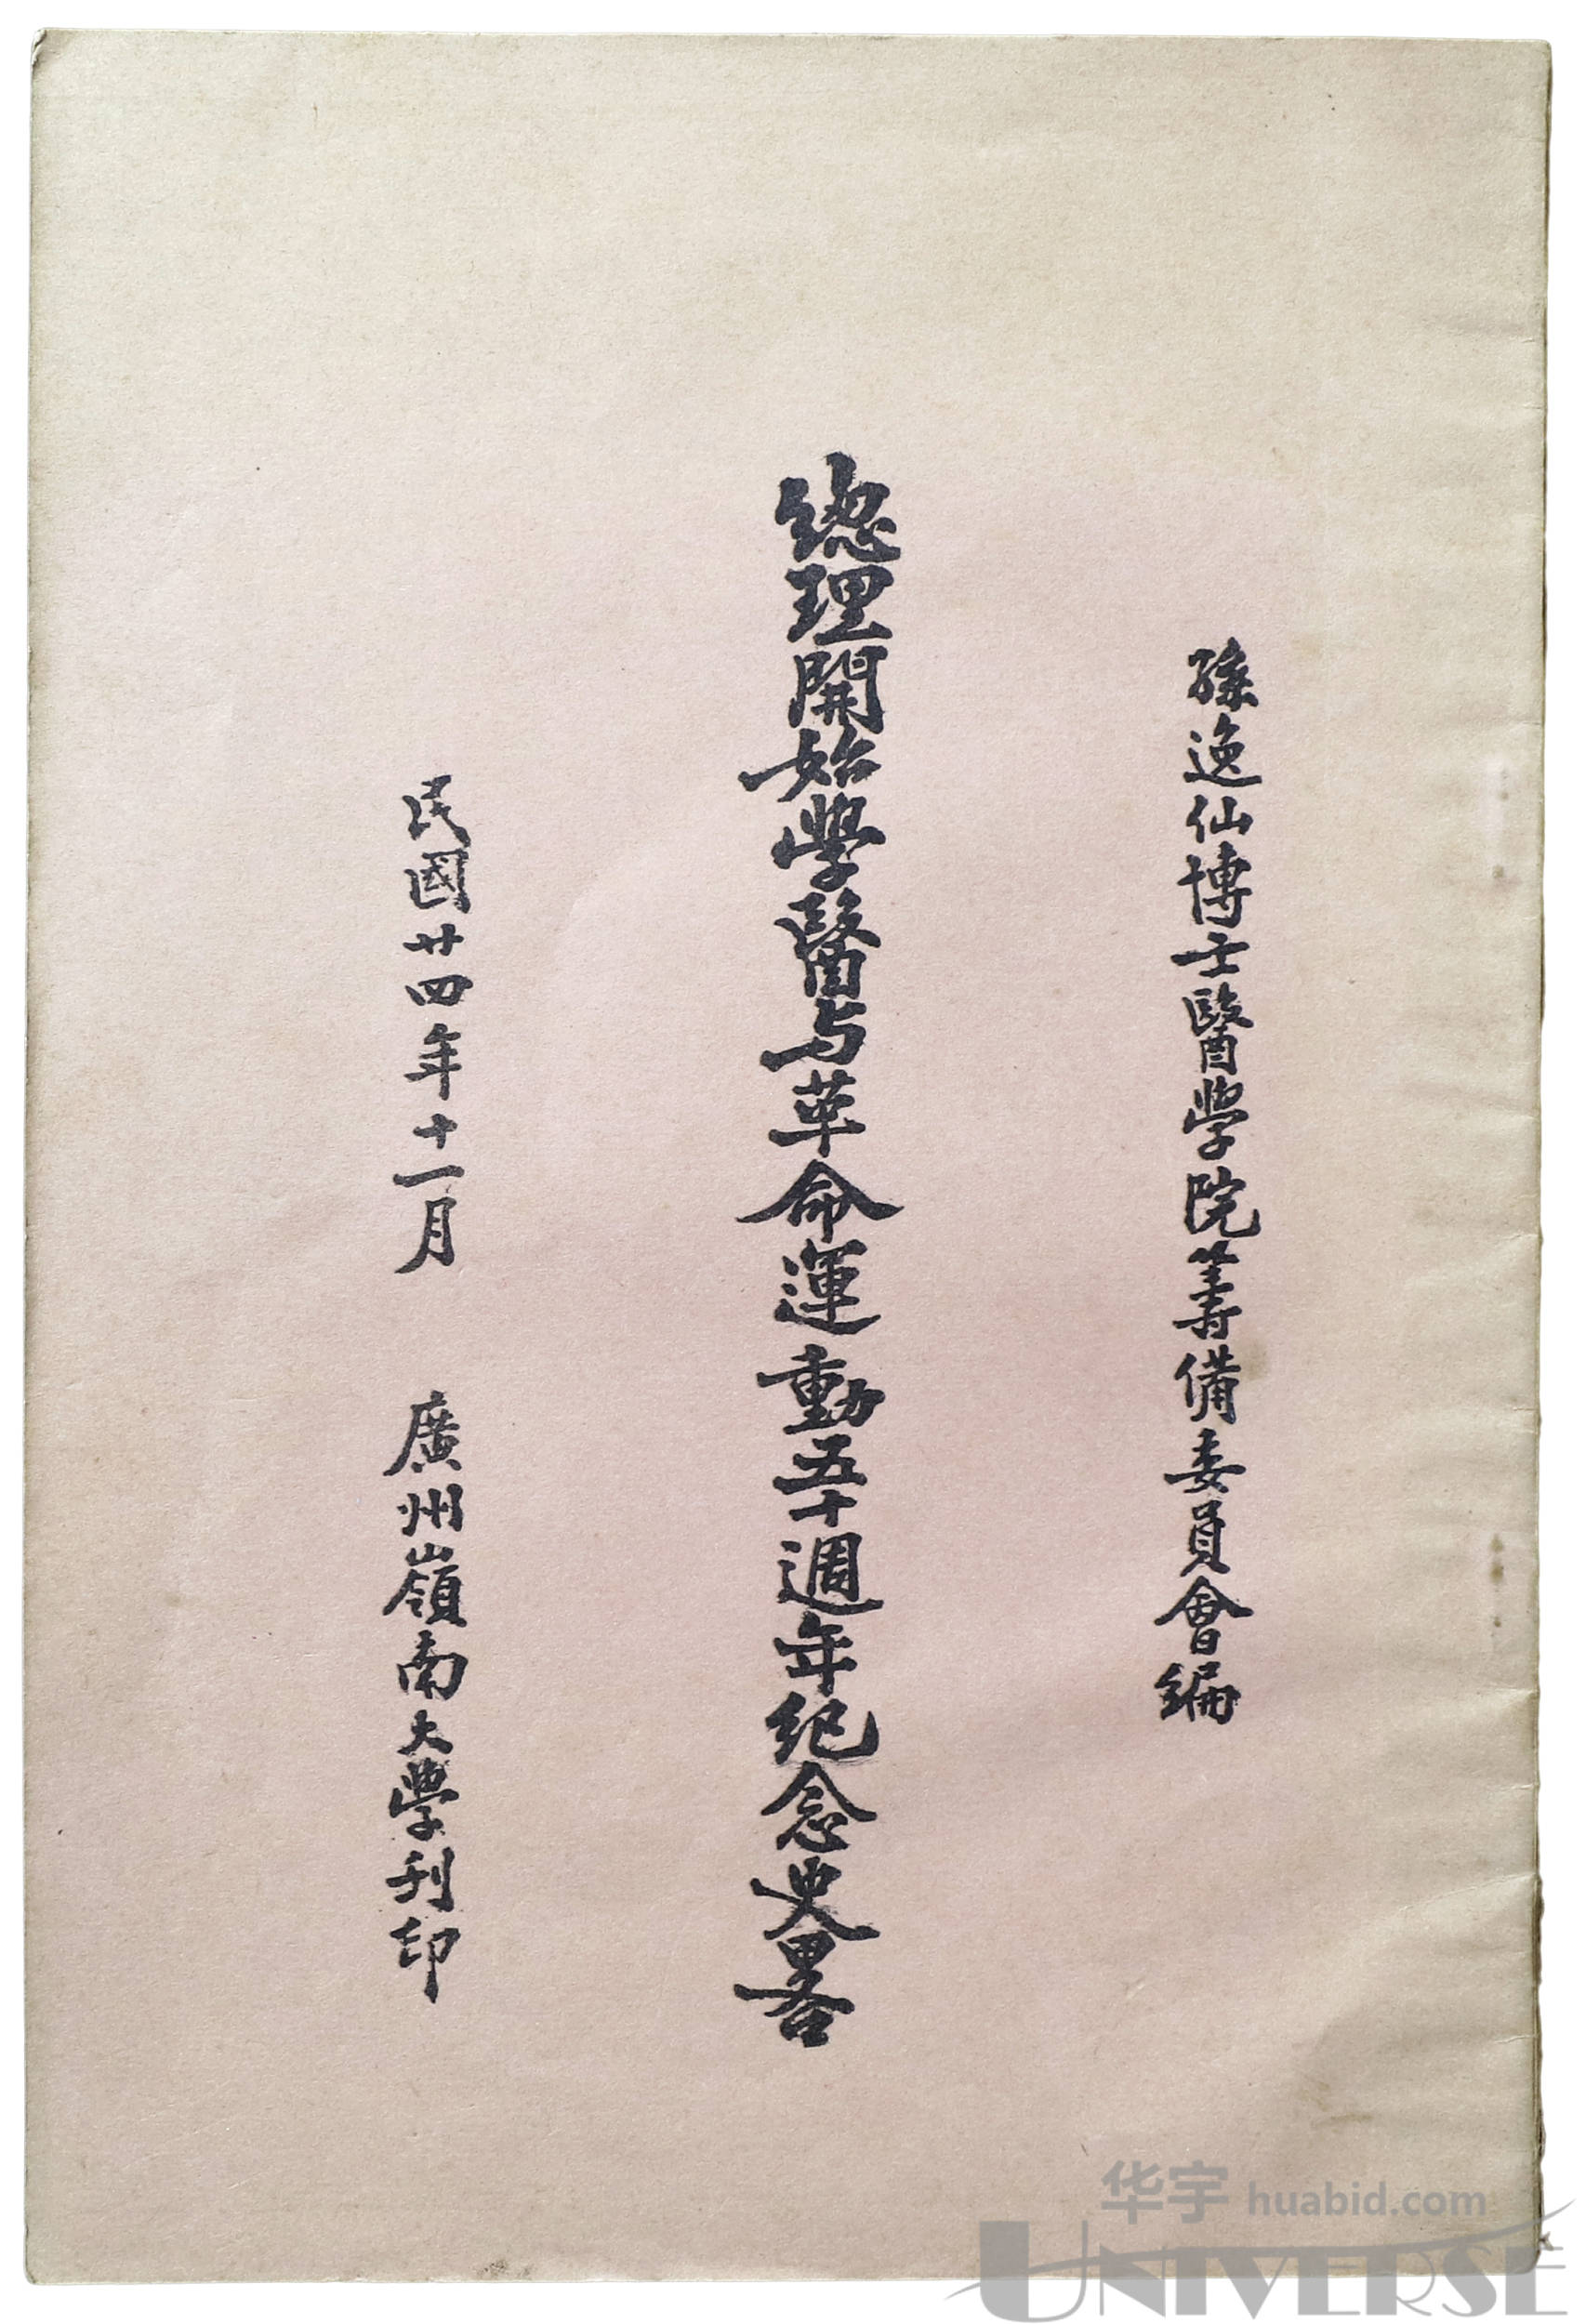 孫逸仙博士醫學院籌備委員會編
總理開始學醫与革命運動五十週年紀念史畧
民國廿四年十一月 廣州嶺南大學刊印
华宇 huabid.com
UNIVERSE